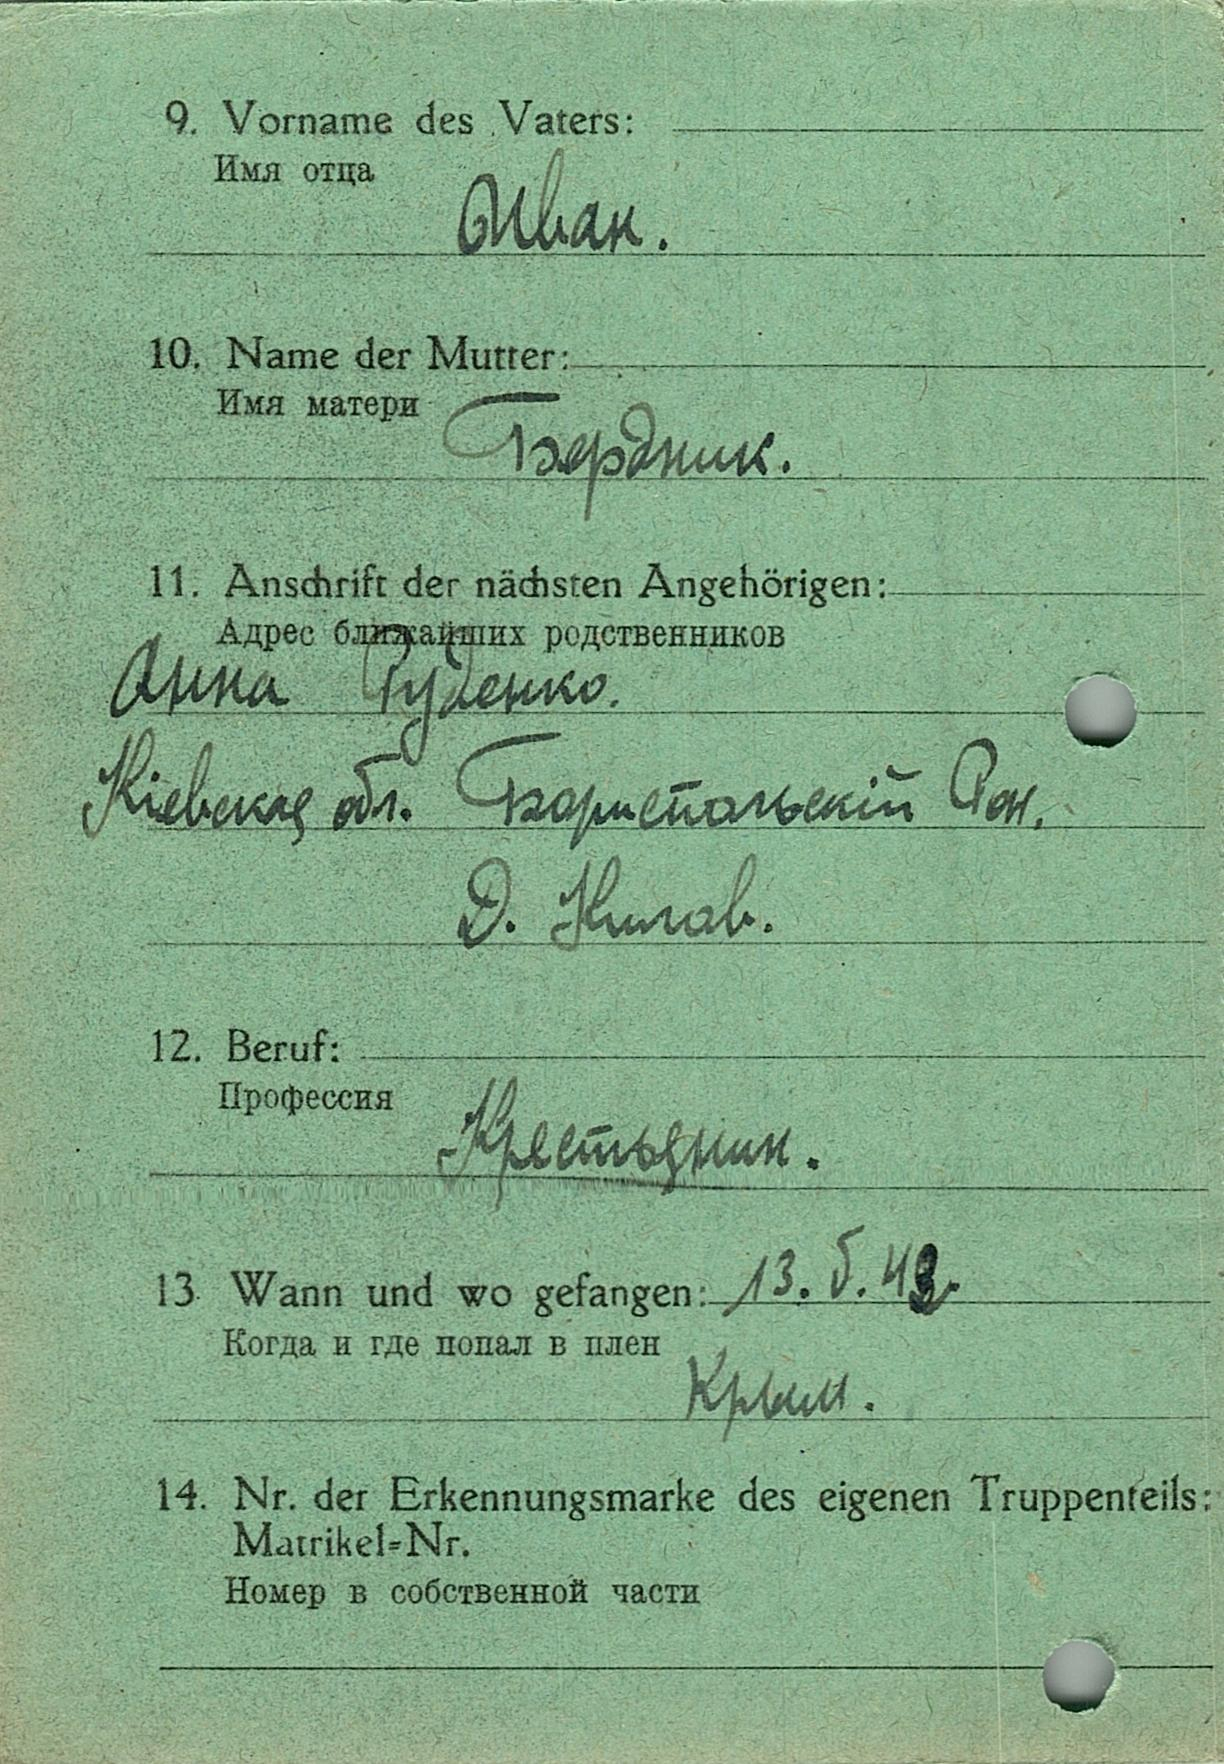 9. Vorname des Vaters:
Имя отца
Иван.
10. Name der Mutter:
Имя матери
Бердник.
11. Anschrift der nächsten Angehörigen:
Адрес ближайших родственников
Анна Руденко.
Кіевская обл. Бориспольскій Рон.
Д.
12. Beruf:
Профессия
Крестьянин.
13 Wann und wo gefangen: 13. 5. 42
Когда и где попал в плен
Крым.
14. Nr. der Erkennungsmarke des eigenen Truppenteils:
Matrikel-Nr.
Номер в собственной части